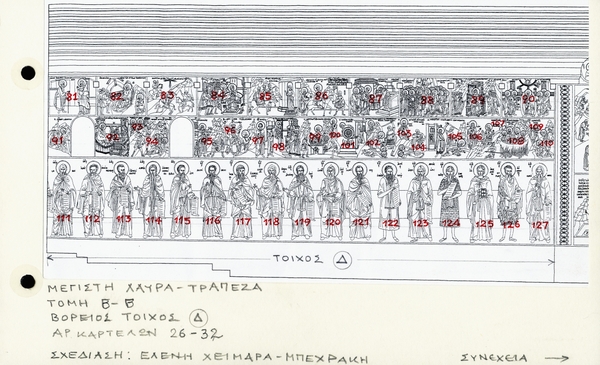 81 82 83 84 85 86 87 88 89 90
91 92 93 94 95 96 97 98 99 100 101 102 103 104 105 106 107 108 109 110
111 112 113 114 115 116 117 118 119 120 121 122 123 124 125 126 127
ΤΟΙΧΟΣ Δ
ΜΕΓΙΣΤΗ ΛΑΥΡΑ-ΤΡΑΠΕΖΑ
ΤΟΜΗ Β-Β
ΒΟΡΕΙΟΣ ΤΟΙΧΟΣ Δ
ΑΡ ΚΑΡΤΕΛΩΝ 26-32
ΣΧΕΔΙΑΣΗ: ΕΛΕΝΗ ΧΕΙΜΑΡΑ-ΜΠΕΧΡΑΚΗ
ΣΥΝΕΧΕΙΑ →